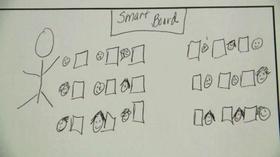 Smart
Board